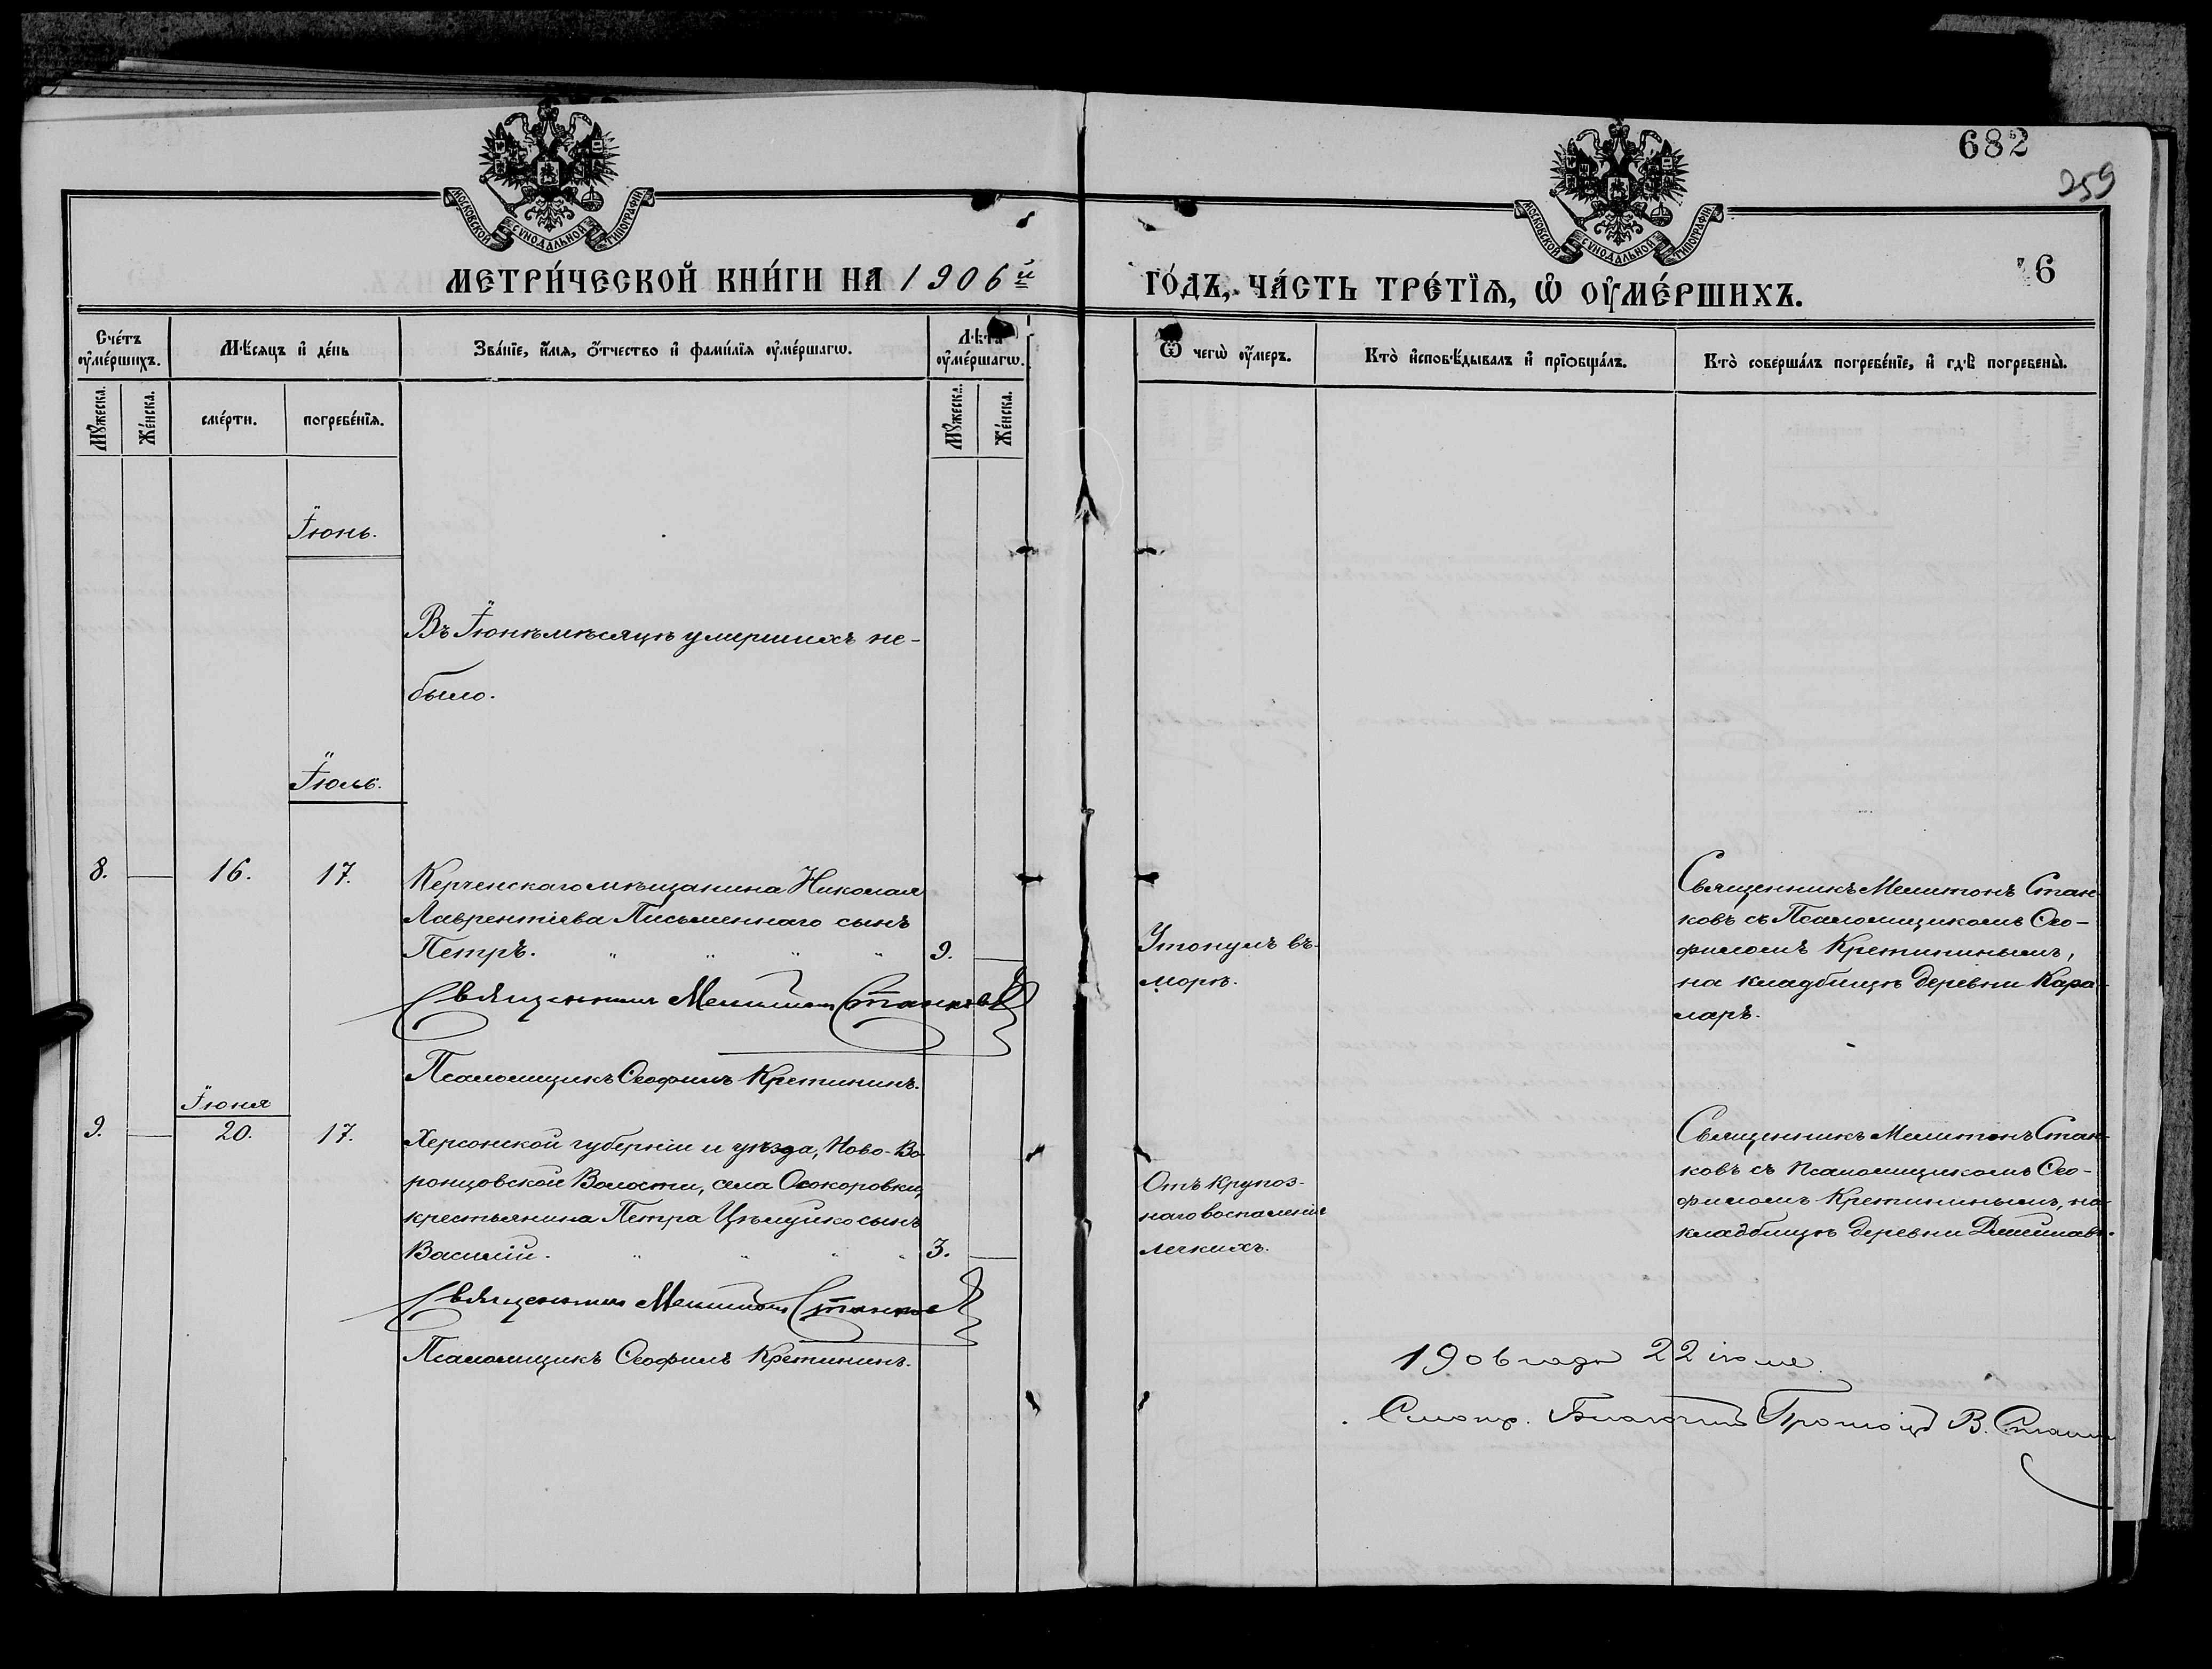 682
259
МОСКОВСКОЙ СѴНОДАЛЬНОЙ ТИПОГРАФІИ
МОСКОВСКОЙ СѴНОДАЛЬНОЙ ТИПОГРАФІИ
МЕТРИ́ЧЕСКОЙ КНИ́ГИ НА 1906й
ГО́ДЪ, ЧА́СТЬ ТРЕ́ТЇѦ, Ѡ ОУМЕ́РШИХЪ.
6
Сче́тъ оу҆ме́ршихъ.
Мѣ́сяцъ и҆ де́нь
Зва́нїе, и҆́мѧ, ѻ҆́тчество и҆ фами́лїѧ оу҆ме́ршагѡ.
Лѣ́та оу҆ме́ршагѡ.
Ѿ чегѡ̀ оу҆́меръ.
Кто̀ и҆сповѣ́дывалъ и҆ прїѻбща́лъ.
Кто̀ соверша́лъ погребе́нїе, и҆ гдѣ̀ погребены̀.
Мꙋ́жеска.
Же́нска.
сме́рти.
погребе́нїѧ.
Мꙋ́жеска.
Же́нска.
Іюнь.
Въ Іюнѣ мѣсяцѣ умершихъ не-
было.
Іюль.
8.
16.
17.
Керченскаго мѣщанина Николая
Лаврентіева Письменнаго сынъ
Петръ. " " " "
9.
Священникъ Мелитонъ Станковъ
Псаломщикъ Ѳеофилъ Кретининъ.
Утонулъ въ
морѣ.
Священникъ Мелитонъ Стан-
ковъ съ Псаломщикомъ Ѳео-
филомъ Кретининымъ,
на кладбищѣ деревни Кара-
ларъ.
Іюня
9.
20.
17.
Херсонской губерніи и уѣзда, Ново-Во-
ронцовской Волости, села Осокоровки,
крестьянина Петра Цѣмушко сынъ
Василій. " " " "
3.
Священникъ Мелитонъ Станковъ
Псаломщикъ Ѳеофилъ Кретининъ.
Отъ крупоз-
наго воспаленія
легкихъ.
Священникъ Мелитонъ Стан-
ковъ съ Псаломщикомъ Ѳео-
филомъ Кретининымъ, на
кладбищѣ деревни
1906 года 22 іюля.
Смотр. Благочин. Протоіер. В.